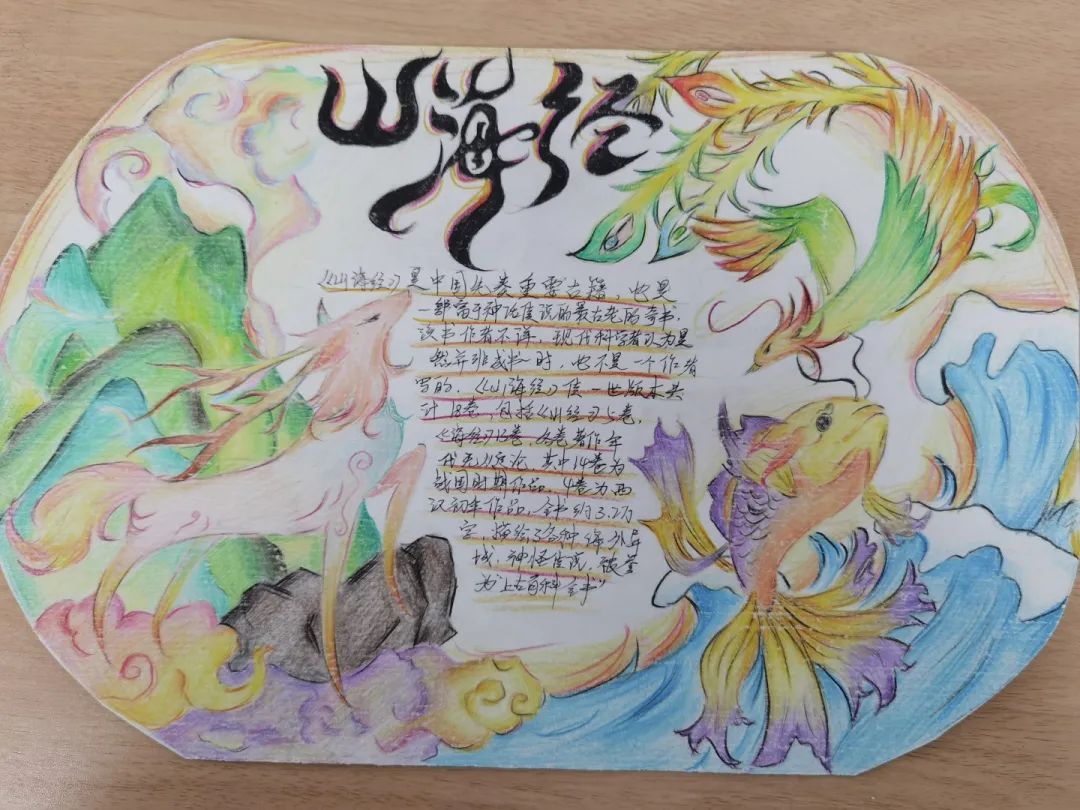 山海经
《山海经》是中国公类重要古籍,也是
一部富于神话传说的最古老的奇书.
该书作者不详,现代科学者认为是
然并非成时,也不是一个作者
写的.《山海经》传世版本共
计18卷,包括《山经》5卷,
《海经》13卷,各卷著作年
代无从定论,其中14卷为
战国时期作品,4卷为西
汉初年作品,全书约3.2万
字,描绘了各种海外异
域,神怪传说,被誉
为"上古百科全书"